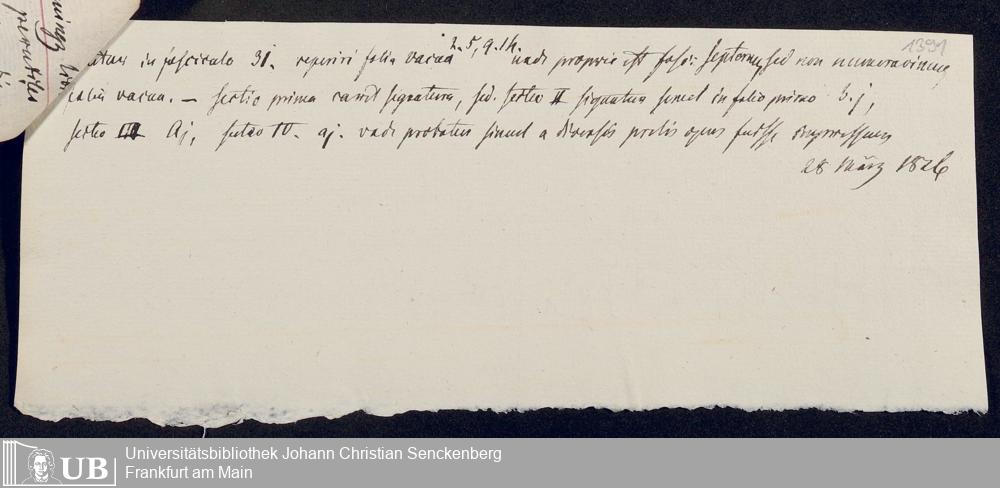 in fasciculo 31. reperiri folia vacua 2. 5, 9. 14. unde proprie est fasc: septernus, sed non numeravimus
folia vacua. — Sectio prima caret signatura, sed Sectio II signatur semel in folio primo
Sectio III Aj, Sectio IV. aj. unde probatur simul a diversis prelis opus fuisse impressum
28 März 1826
1391
Universitätsbibliothek Johann Christian Senckenberg
Frankfurt am Main
UB